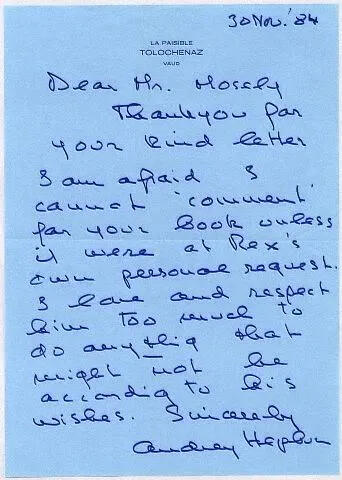 30 Nov. '84
LA PAISIBLE
TOLOCHENAZ
VAUD
Dear Mr. Mosely
Thank you for
your kind letter
I am afraid I
cannot 'comment'
for your book unless
it were at Rex's
own personal request.
I love and respect
him too much to
do anything that
might not be
according to his
wishes. Sincerely
Audrey Hepburn